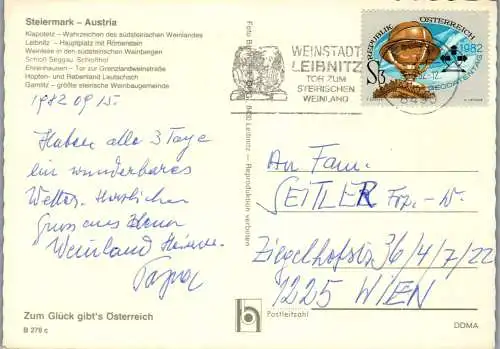 Steiermark – Austria
Klapotetz – Wahrzeichen des südsteirischen Weinlandes
Leibnitz – Hauptplatz mit Römerstein
Weinlese in den südsteirischen Weinbergen
Schloß Seggau, Schloßhof
Ehrenhausen – Tor zur Grenzlandweinstraße
Hopfen- und Rebenland Leutschach
Gamlitz – größte steirische Weinbaugemeinde
1982 09 15.
Haben alle 3 Tage
ein wunderbares
Wetter. Herzlichen
Gruss aus
Weinland
Zum Glück gibt's Österreich
B 279 c
Leibnitz – Reproduktion verboten
WEINSTADT
LEIBNITZ
TOR ZUM
STEIRISCHEN
WEINLAND
REPUBLIK ÖSTERREICH
1982
S3
GEODÄTENTAG
An Fam.
SEITLER Frz. - W.
Ziegelhofstr 36/4/7/22
1225 WIEN
Postleitzahl
DDMA